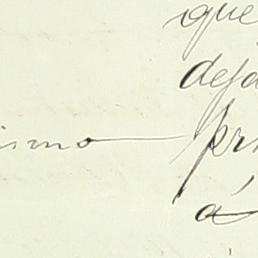 que
deja
ismo — pri
á